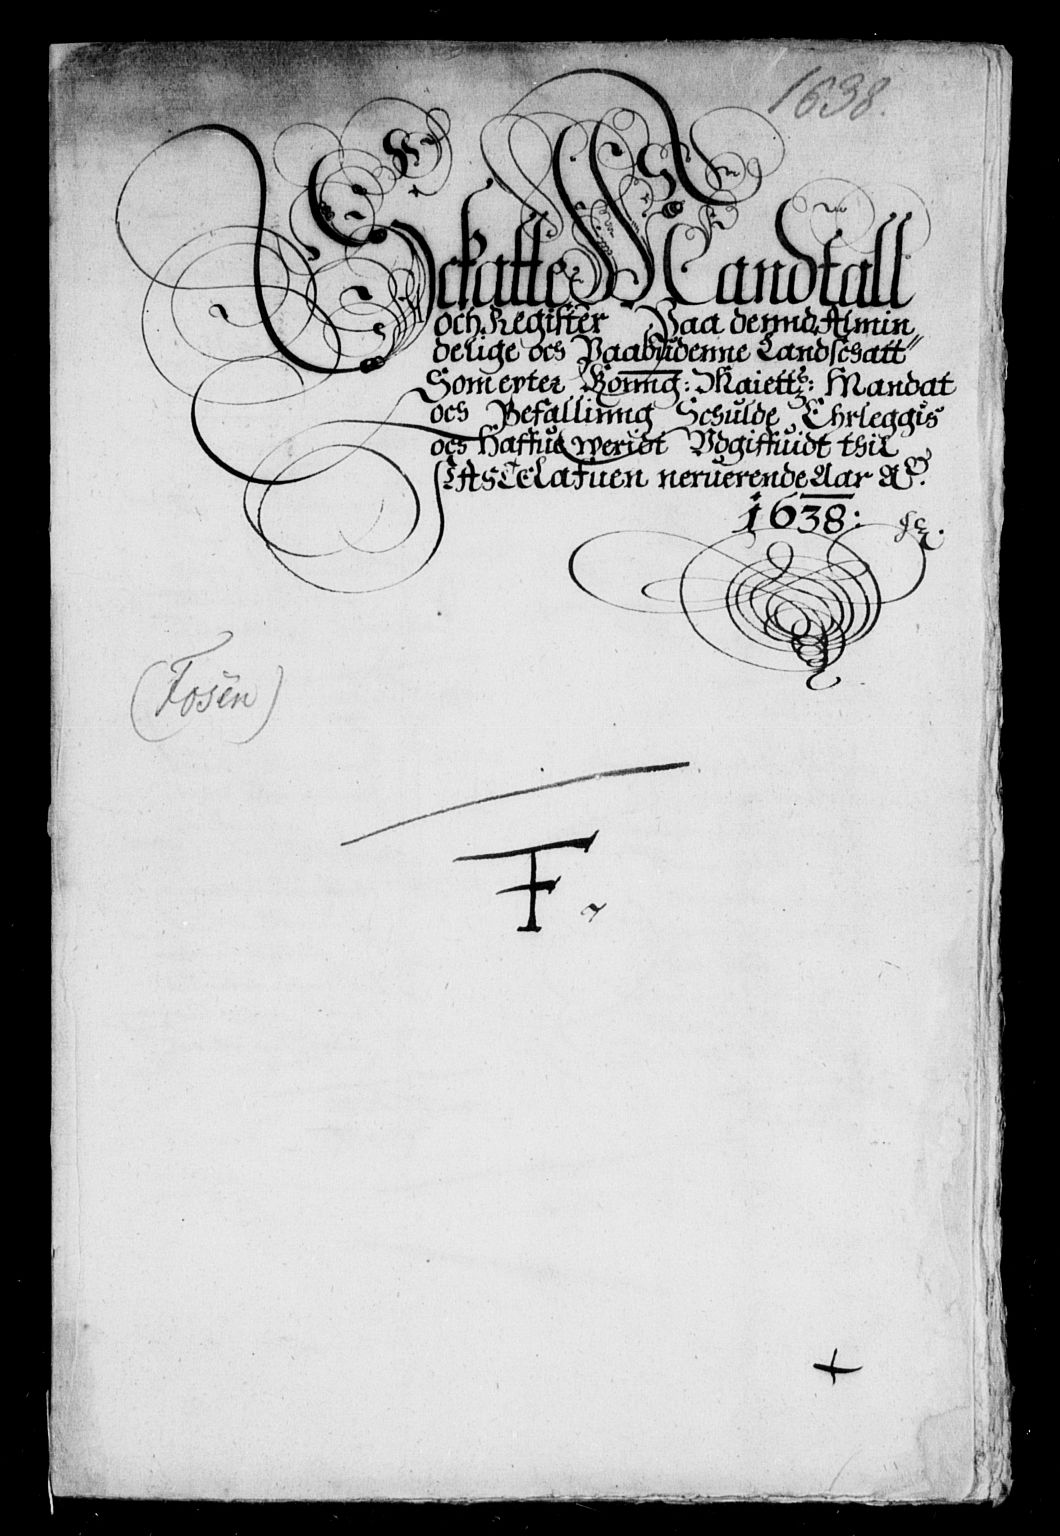 1638.
Schatte Mandtall
och Register Paa dennd Almin
delige och Paabudenne Landschatt
Som epter Konng: Maietts: Mandat
och Befallinng Schulde Ehrleggis
och Haffue weridt Udgiffuidt thil
nerueren​de Aar Aº.
1638:
(Fosen)
F.